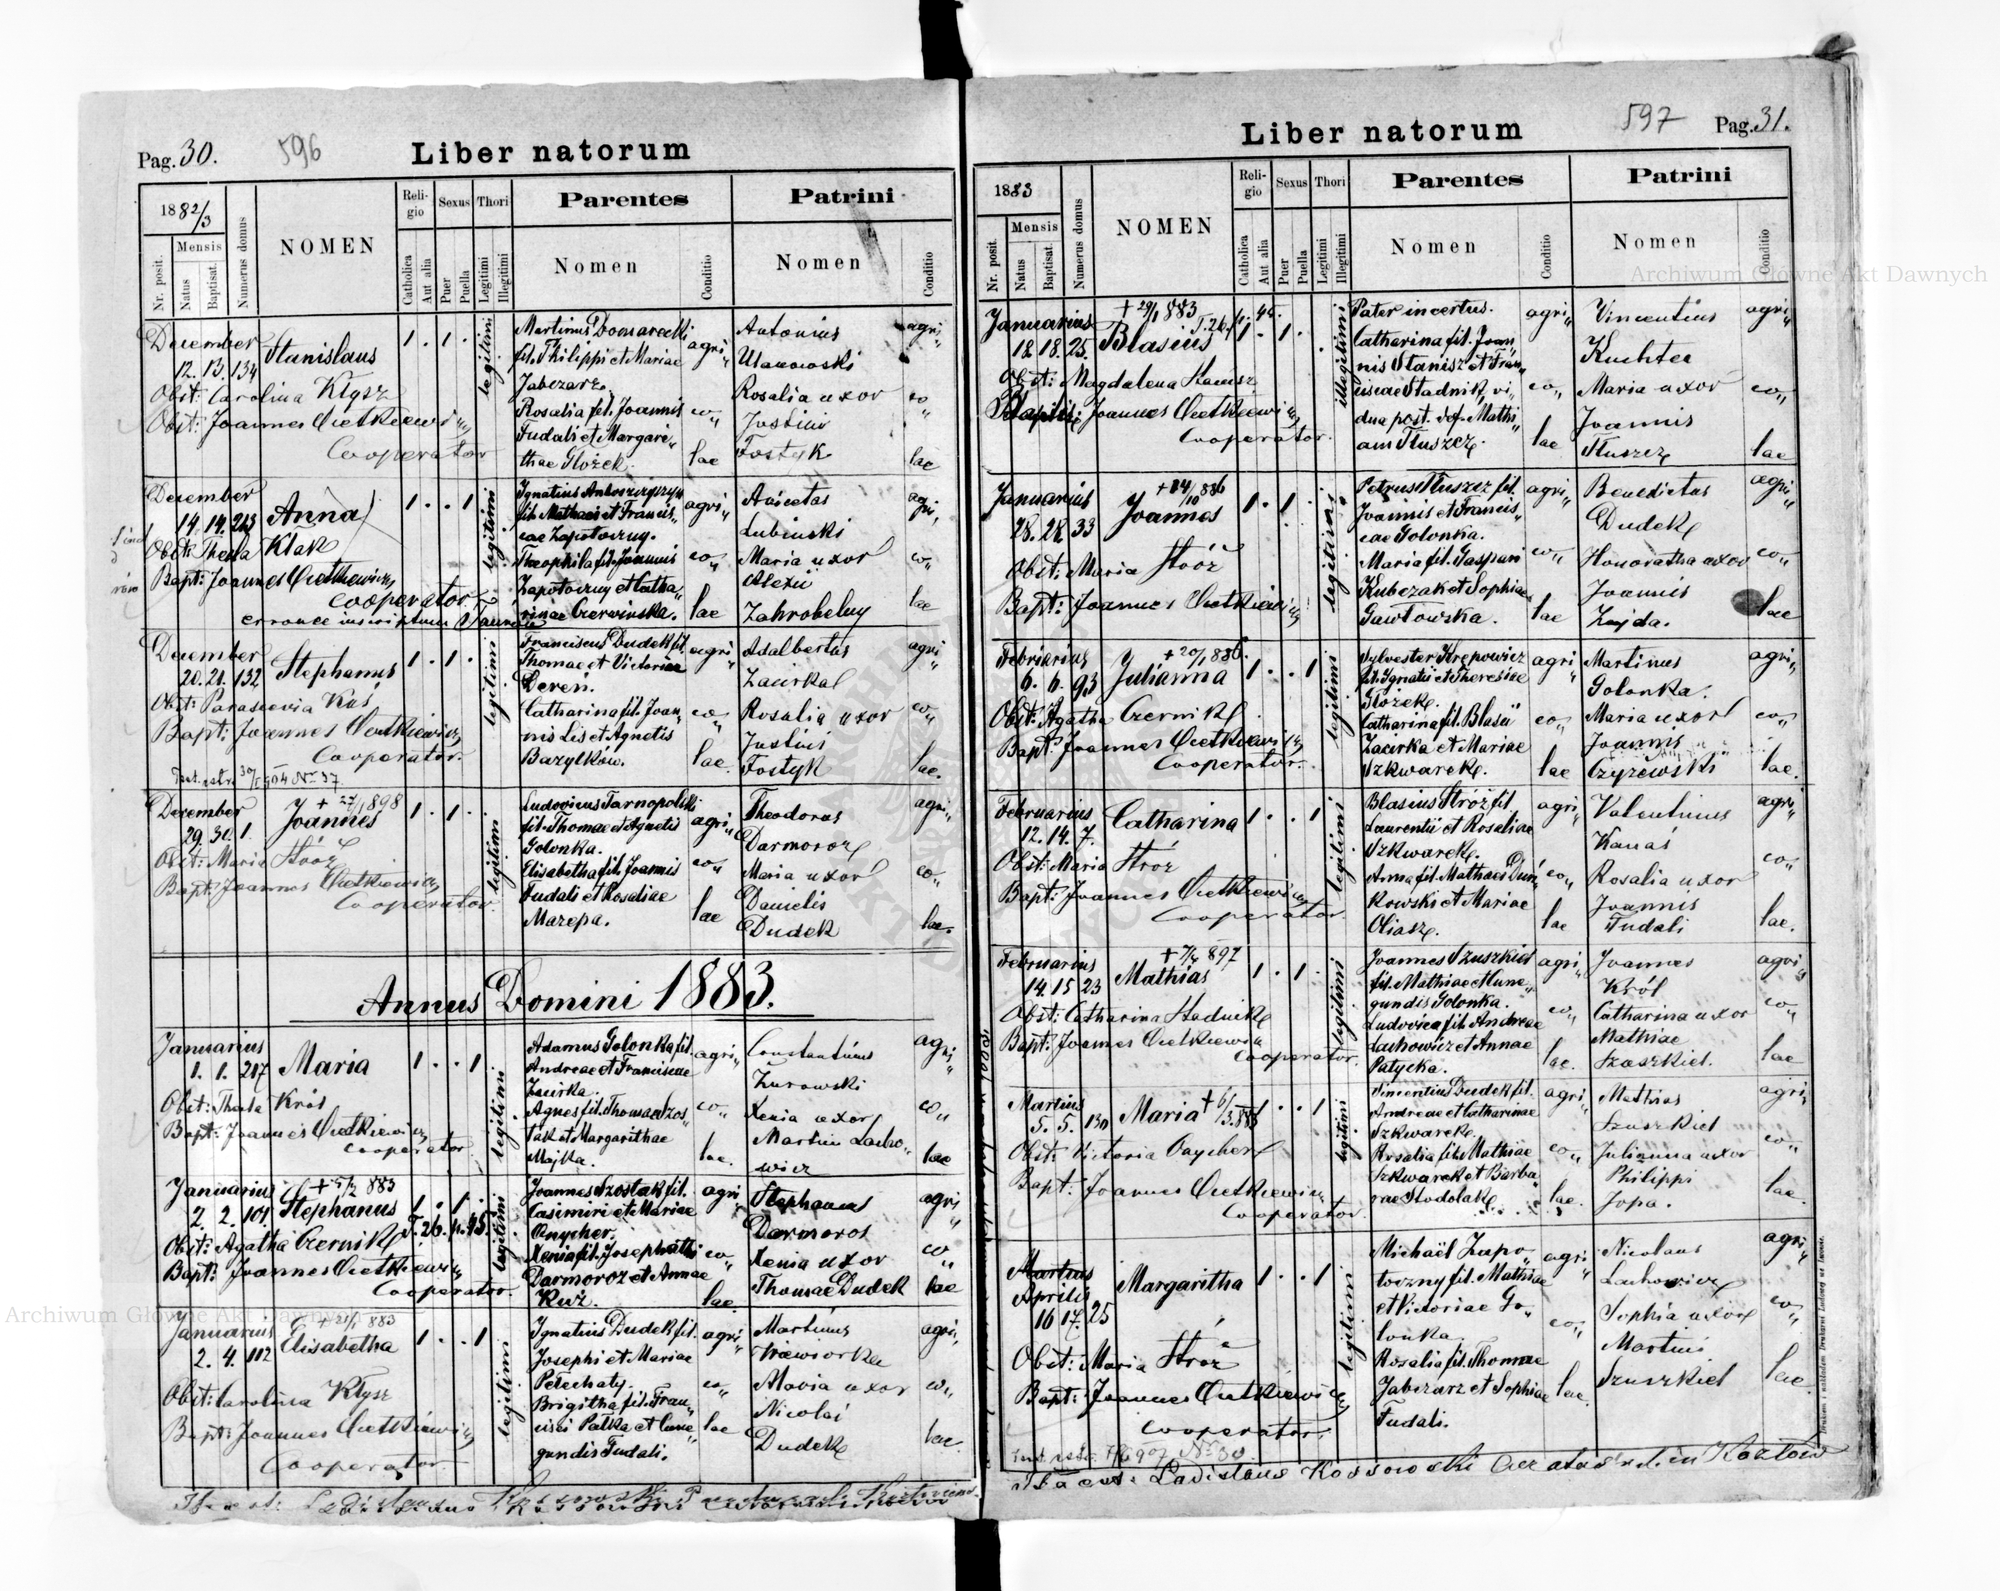 Pag. 30.
596
Liber natorum
1882/3
Nr. posit.
Mensis
Natus
Baptisat.
Numerus domus
NOMEN
Religio
Catholica
Aut alia
Sexus
Puer
Puella
Thori
Legitimi
Illegitimi
Parentes
Nomen
Conditio
Patrini
Nomen
Conditio
December
12. 13. 134
Stanislaus
Obst: Carolina Kłysz
Obst: Joannes
Cooperator
1 . 1 .
legitimi
Martinus Domarecki
fil. Philippi et Mariae
Jabczarz.
Rosalia fil. Joannis
Fudali et Margari„
thae Głożek.
agri„
co„
lae
Antonius
Rosalia uxor
Justini
Fostyk
agri„
co„
lae
December
14. 14. 213
Anna
Obst: Thecla Kłak
Bapt: Joannes
cooperator
1 . . 1
legitimi
Ignatius
fil. Mathaei et Francis„
cae Zapotoczny.
Theophila fil. Joannis
Zapotoczny et Catha„
rinae Czerwinska.
agri„
co„
lae
Anicetas
Lubinski
Maria uxor
Alexii
Zahrobelny
agri„
co„
lae
December
20. 21. 132
Stephanus
Obst: Parascevia Kuś
Bapt: Joannes
Cooperator
1 . 1 .
legitimi
Franciscus Dudek fil.
Thomae et Victoriae
Dereń.
Catharina fil. Joan„
nis Lis et Agnetis
Bazylków.
agri„
co„
lae.
Adalbertus
Zacirka
Rosalia uxor
Justini
Fostyk
agri„
co„
lae.
December
29. 30. 1.
Joannes
Obst: Maria Stróż
Bapt: Joannes
Cooperator.
1 . 1 .
legitimi
Ludovicus Tarnopolski
fil. Thomae et Agnetis
Golonka.
Elisabetha fil. Joannis
Fudali et Rosaliae
Mazepa.
agri„
co„
lae
Theodorus
Darmoroz
Maria uxor
Danielis
Dudek
agri„
co„
lae.
Annus Domini 1883.
Januarius
1. 1. 217
Maria
Obst: Thecla Król
Bapt: Joannes
Cooperator
1 . . 1
legitimi
Adamus Golonka fil.
Andreae et Franciscae
Zacirka.
Agnes fil. Thomae Szos„
tak et Margarithae
Majka.
agri„
co„
lae.
Constantinus
Żurowski
Xenia uxor
Martini Lacho„
wicz
agri„
co„
lae
Januarius
2. 2. 101.
Stephanus
Obst: Agatha Czernik
Bapt: Joannes
Cooperator.
1 . 1 .
legitimi
Joannes Szostak fil.
Casimiri et Mariae
Onycher.
Xenia fil. Josephathi
Darmoroz et Annae
agri„
co„
lae.
Stephanus
Darmoros
Xenia uxor
Thomae Dudek
agri„
co„
lae
Januarius
2. 4. 112
Elisabetha
Obst: Carolina Kłysz
Bapt: Joannes
Cooperator
1 . . 1
legitimi
Ignatius Dudek fil.
Josephi et Mariae
Petechaty.
Brigitha fil. Fran„
cisci Pałka et Cune„
gundis Fudali.
agri„
co„
lae
Martinus
Maria uxor
Nicolai
Dudek
agri„
co„
lae.
597
Pag. 31.
Liber natorum
1883
Nr. posit.
Mensis
Natus
Baptisat.
Numerus domus
NOMEN
Religio
Catholica
Aut alia
Sexus
Puer
Puella
Thori
Legitimi
Illegitimi
Parentes
Nomen
Conditio
Patrini
Nomen
Conditio
Januarius
18. 18. 25.
+ 29/1 883
Blasius
Obst: Magdalena Stanisz
Joannes
Cooperator.
1 . 1 .
illegitimi
Pater incertus.
Catharina fil. Joan„
nis Stanisz et Fran„
ciscae Stadnik, vi„
dua post. def. Mathi„
am Tłuszcz.
agri„
co„
lae
Vincentius
Kuchta
Maria uxor
Joannis
Tłuszcz
agri„
co„
lae
Januarius
28. 28. 33
Joannes
Obst: Maria Stróż
Bapt: Joannes
1 . 1 .
legitimi
Petrus Tłuszcz fil.
Joannis et Francis„
cae Golonka.
Maria fil. Gaspari
Kubczak et Sophiae
Gawłowska.
agri„
co„
lae
Benedictus
Dudek
Honoratha uxor
Joannis
Zajda.
agri„
co„
lae
Februarius
6. 6. 93
+ 20/1 886.
Julianna
Obst: Agatha Czernik
Bapt: Joannes
Cooperator.
1 . . 1
legitimi
Sylvester Krepowicz
fil. Ignatii et Theresiae
Głożek.
Catharina fil. Blasii
Zacirka et Mariae
Szkwarek.
agri„
co„
lae
Martinus
Golonka.
Maria uxor
Joannis
Czyżewski
agri„
co„
lae.
Februarius
12. 14. 7.
Catharina
Obst: Maria Stróż
Bapt: Joannes
Cooperator.
1 . . 1
legitimi
Blasius Stróż fil.
Laurentii et Rosaliae
Szkwarek.
Anna fil. Mathaei Dun„
kowski et Mariae
Oliasz.
agri„
co„
lae
Valentinus
Kanas
Rosalia uxor
Joannis
Fudali
agri„
co„
lae.
Februarius
14. 15 23
Mathias
Obst: Catharina Stadnik
Bapt: Joannes
Cooperator.
1 . 1 .
legitimi
Joannes Szuszkiel
fil. Mathiae et Cune„
gundis Golonka.
Ludovica fil. Andreae
Lachowicz et Annae
Patycka.
agri„
co„
lae.
Joannes
Król
Catharina uxor
Mathiae
Szuszkiel.
agri„
co„
lae
Martius
5. 5. 130
Maria
Obst: Victoria Onycher
Bapt: Joannes
Cooperator.
1 . . 1
legitimi
Vincentius Dudek fil.
Andreae et Catharinae
Szkwarek.
Rosalia fil. Mathiae
Szkwarek et Barba„
rae Stodolak.
agri„
co„
lae.
Mathias
Szuszkiel
Julianna uxor
Philippi
Jopa.
agri„
co„
lae.
Martius
Aprilis
16 17. 25
Margaritha
Obst: Maria Stróż
Bapt: Joannes
Cooperator.
1 . . 1
legitimi
Michaël Zapo„
toczny fil. Mathiae
et Victoriae Go„
lonka.
Rosalia fil. Thomae
Jabczarz et Sophiae
Fudali.
agri„
co„
lae.
Nicolaus
Lachowicz
Sophia uxor
Martini
Szuszkiel
agri„
co„
lae.
Ladislaus Kossowski
Archiwum Główne Akt Dawnych
Archiwum Główne Akt Dawnych